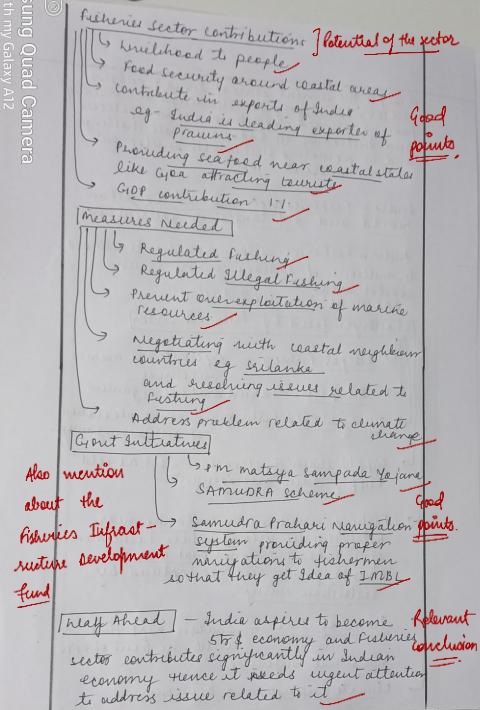 Fisheries Sector Contributions
] Potential of the sector
Livelihood to people
Food security around coastal areas
Contribute in exports of India
eg- India is leading exporter of
Prawns
Good
points.
Providing seafood near coastal states
like Goa attracting tourists
GDP contribution 1%.
Measures Needed
Regulated Fishing
Regulated Illegal Fishing
Prevent overexploitation of marine
resources
Negotiating with coastal neighbour
countries eg Srilanka
and resolving issues related to
Fishing
Address problem related to climate
change
Govt Initiatives
PM Matsya Sampada Yojana
SAMUDRA Scheme
Samudra Prahari Navigation
system providing proper
navigations to fishermen
so that they get Idea of IMBL
Good
points.
Also mention
about the
Fisheries Infrast-
ructure Development
fund
Way Ahead - India aspires to become
5tr $ economy and Fisheries
sector contributes significantly in Indian
economy Hence it needs urgent attention
to address issue related to it
Relevant
conclusion
sung Quad Camera
th my Galaxy A12